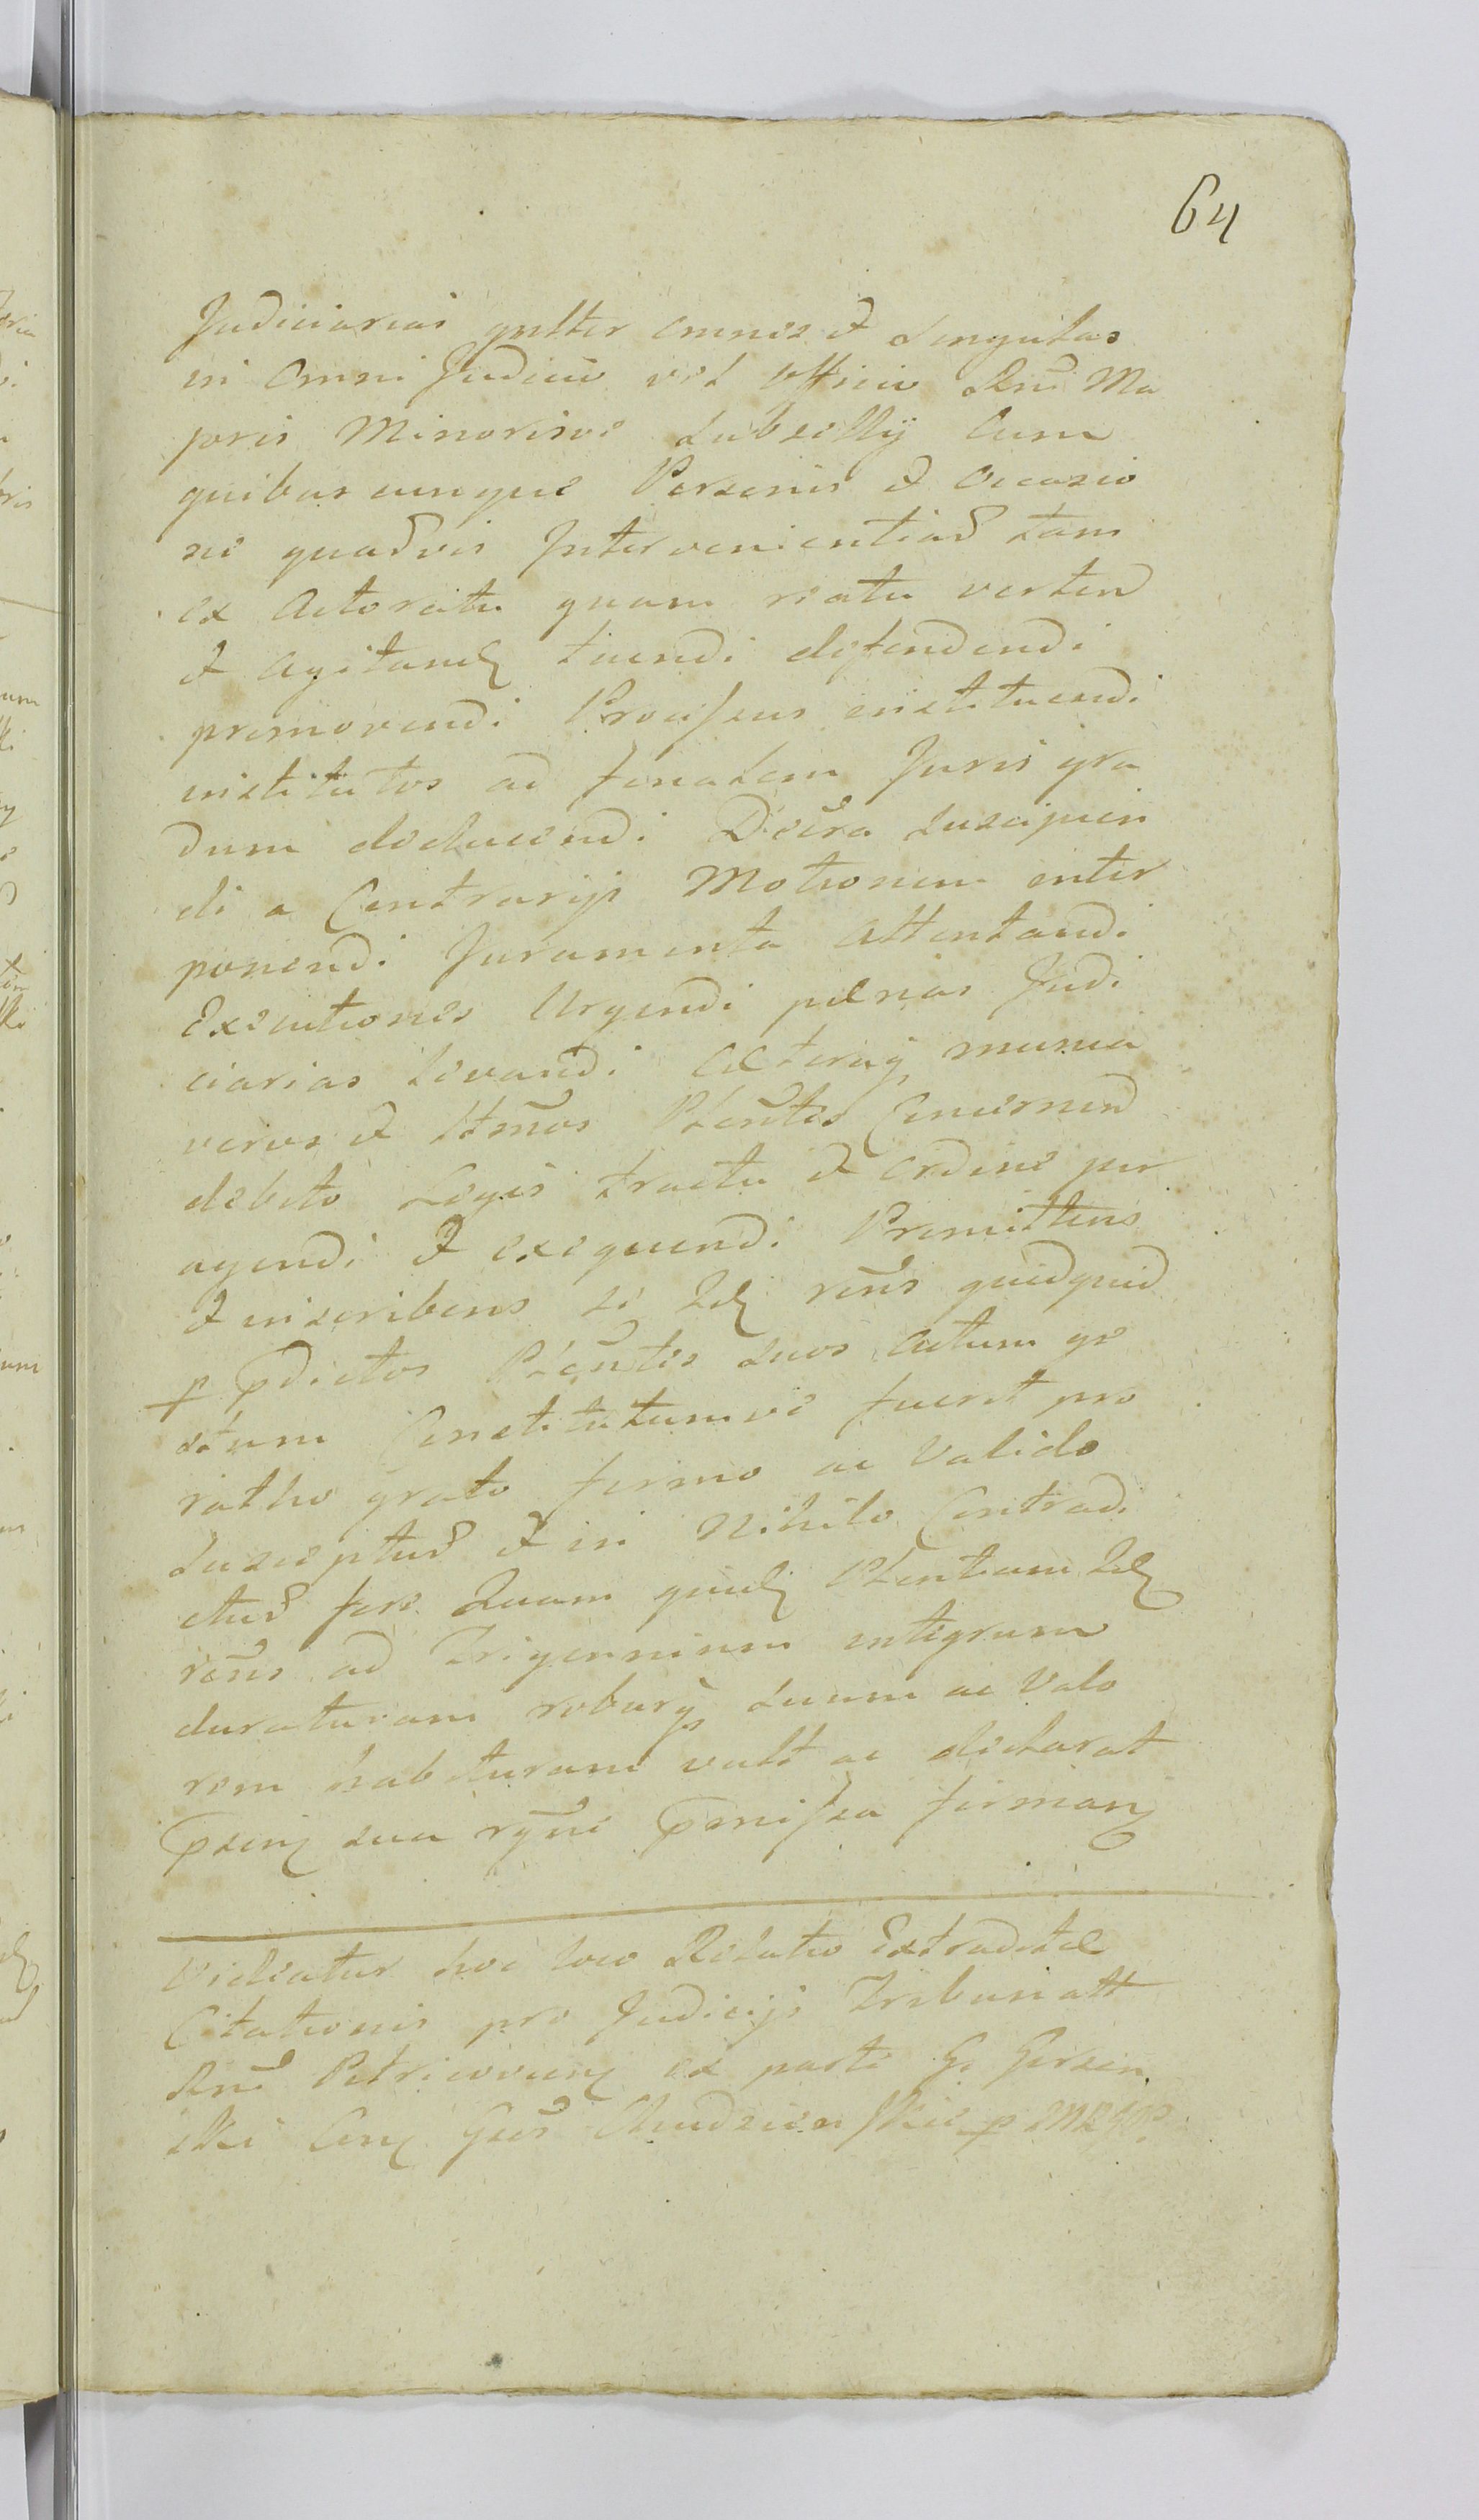 64
Judiciarias gnltter omnes et Singulas
in Omni Judicio vel Officio Rni Ma
joris Minorisve Subsellij Cum
quibuscunque Personis et Occasio
ne quadvis Intervenientiad tam
ex Actoratu quam reatu verten
et Agitand tuendi defendendi
promovendi Processus instituendi
institutos ad finalem Juris gra
dum deducendi Decra suscipien
di a Contrarijs Motionem inter
ponendi Juramenta Attentandi
Executiones Urgendi paenas Judi
ciarias Levandi Caeteraq munia
veros et Ltmos Plentes Concernen
debito Legis tractu et ordine per
agendi et exequendi Promittens
et inscribens se Idq rens quidquid
p pdictos Plentes suos Actum ge
stum Constitutumve fuerit pro
ratho grato firmo ac Valido
Suscepturd et in Nihilo Contradi
cturd fore Quam quidq Plentiam Idq
rens ad Trigennium integrum
duraturam roburq suum ac Valo
rem habituram vult ac declarat
psenq sua rgne pmissa firmanq
Videatur hoc loco Relatio Extraditae
Citationis pro Judicijs Tribunatt
Rni Petricovienq ex parte G. Gorzen
ski Conq Gsos Chudzienskie p